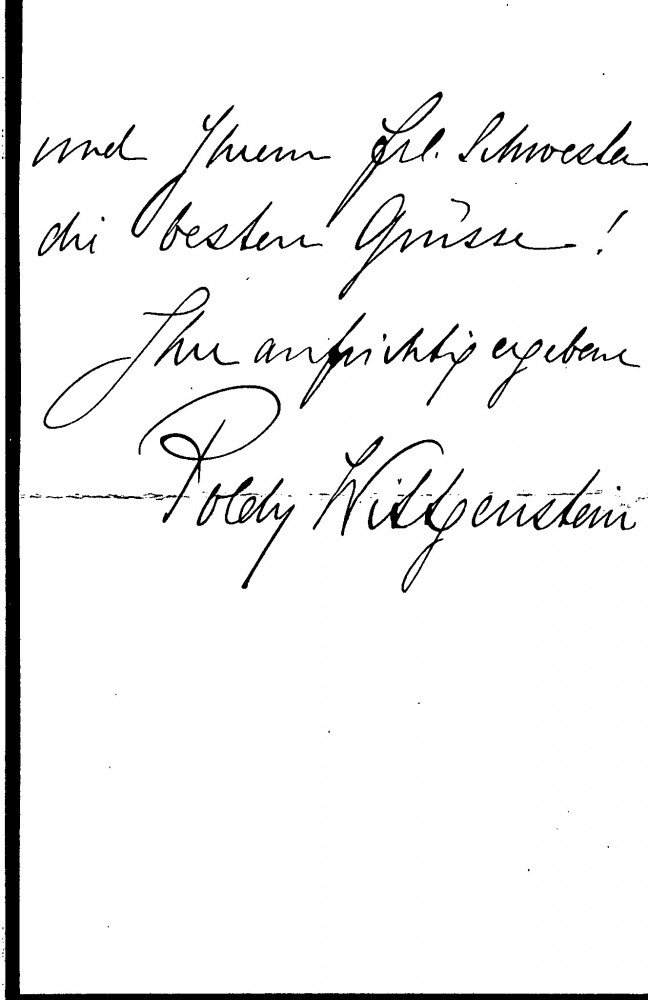 und Ihrem Frl. Schwester
die besten Grüsse!
Ihre aufrichtig ergebene
Poldy Wittgenstein